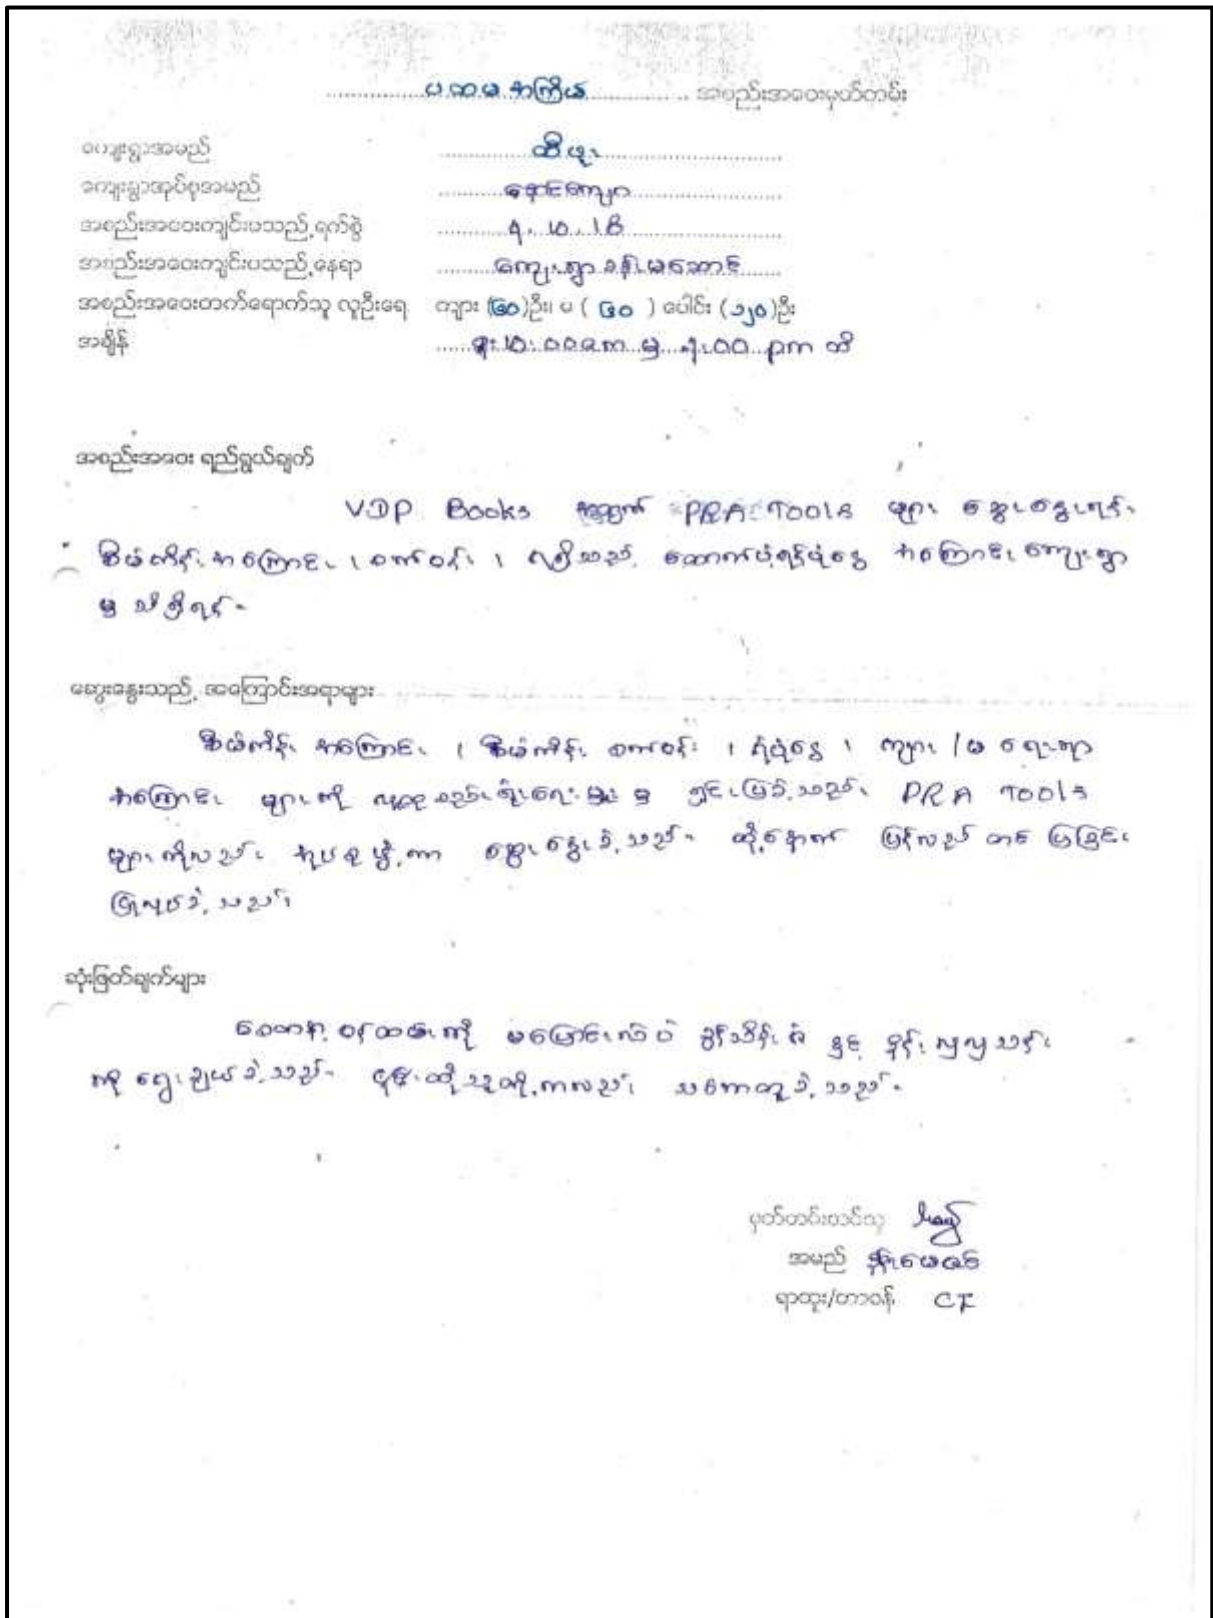 ပထမအကြိမ် အစည်းအဝေးမှတ်တမ်း
ကျေးရွာအမည် ထီဖူး
ကျေးရွာအုပ်စုအမည် နောင်ကျော
အစည်းအဝေးကျင်းပသည့်ရက်စွဲ ၅.၂.18
အစည်းအဝေးကျင်းပသည့်နေရာ ကျေးရွာခန်းမဆောင်
အစည်းအဝေးတက်ရောက်သူ လူဦးရေ ကျား (၆၀)ဦး၊ မ ( ၆၀ ) ပေါင်း (၁၂၀)ဦး
အချိန် 10:00 am မှ 00 pm ထိ
အစည်းအဝေး ရည်ရွယ်ချက်
VDP Books အတွက် PRA Tools များ ဆွေးနွေးရန်၊
စီမံကိန်းအကြောင်း ၊ စက်ဝန်း ၊ ရရှိသည့် ထောက်ပံ့ရန်ပုံငွေ အကြောင်း ကျေးရွာ
မှ သိရှိရန်။
ဆွေးနွေးသည့် အကြောင်းအရာများ
စီမံကိန်း အကြောင်း ၊ စီမံကိန်း စက်ဝန်း ၊ ရံပုံငွေ ၊ ကျား /မ ရေးရာ
အကြောင်း များကို လူထုစည်းရုံးရေးမှူး မှ ရှင်းပြခဲ့သည်။ PRA Tools
များကိုလည်း အုပ်စုဖွဲ့ကာ ဆွေးနွေးခဲ့သည်။ ထို့နောက် ပြန်လည် တင်ပြခြင်း
ပြုလုပ်ခဲ့သည်။
ဆုံးဖြတ်ချက်များ
စေတနာ့ဝန်ထမ်းကို မပြောင်းလဲပဲ ခွန်သိန်းဇံ နှင့် နန်းလှလှသန်း
ကို ရွေးချယ်ခဲ့သည်။ ၎င်းတို့သူတို့ကလည်း သဘောတူခဲ့သည်။
မှတ်တမ်းတင်သူ
အမည်
ရာထူး/တာဝန် CF